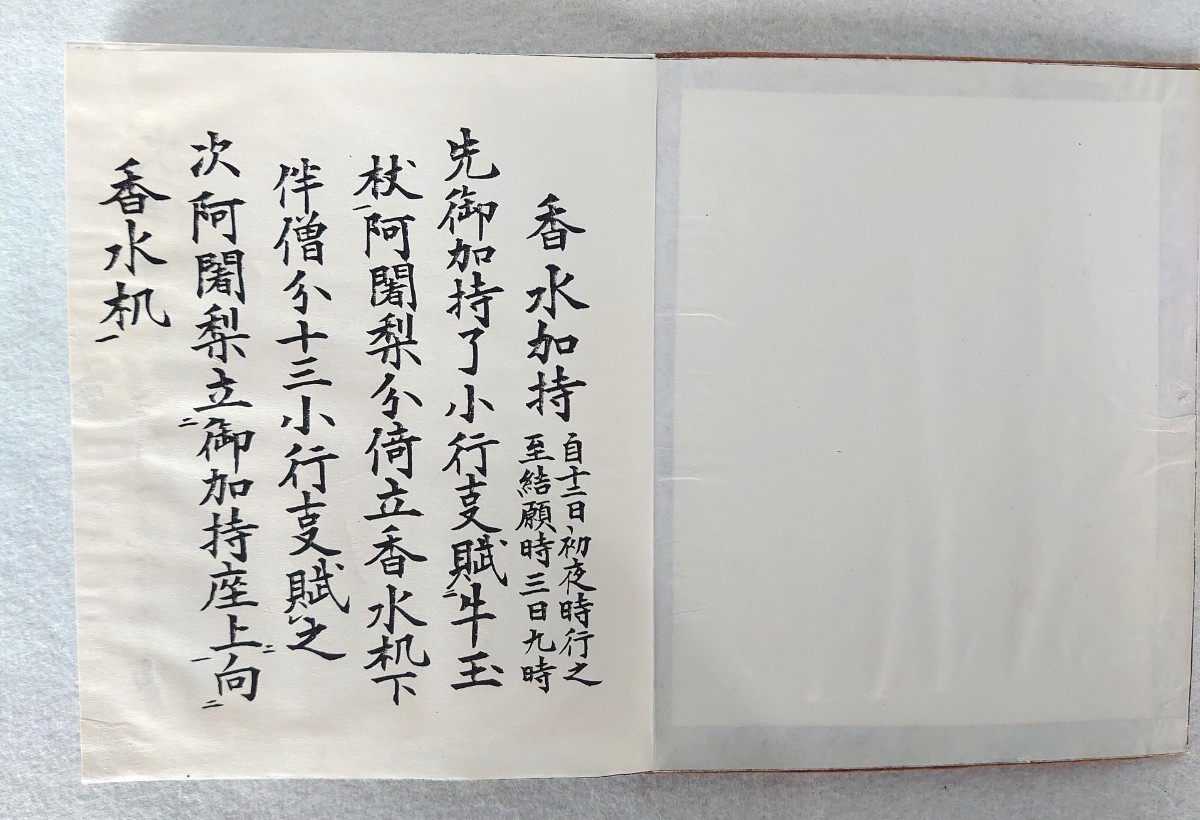 香水加持
自十二日初夜時行之
至結願時三日九時
先御加持了小行叓賦二牛玉
杖一阿闍梨分倚立香水机下
伴僧分十三小行叓賦レ之
次阿闍梨立二御加持座上一向二
香水机一